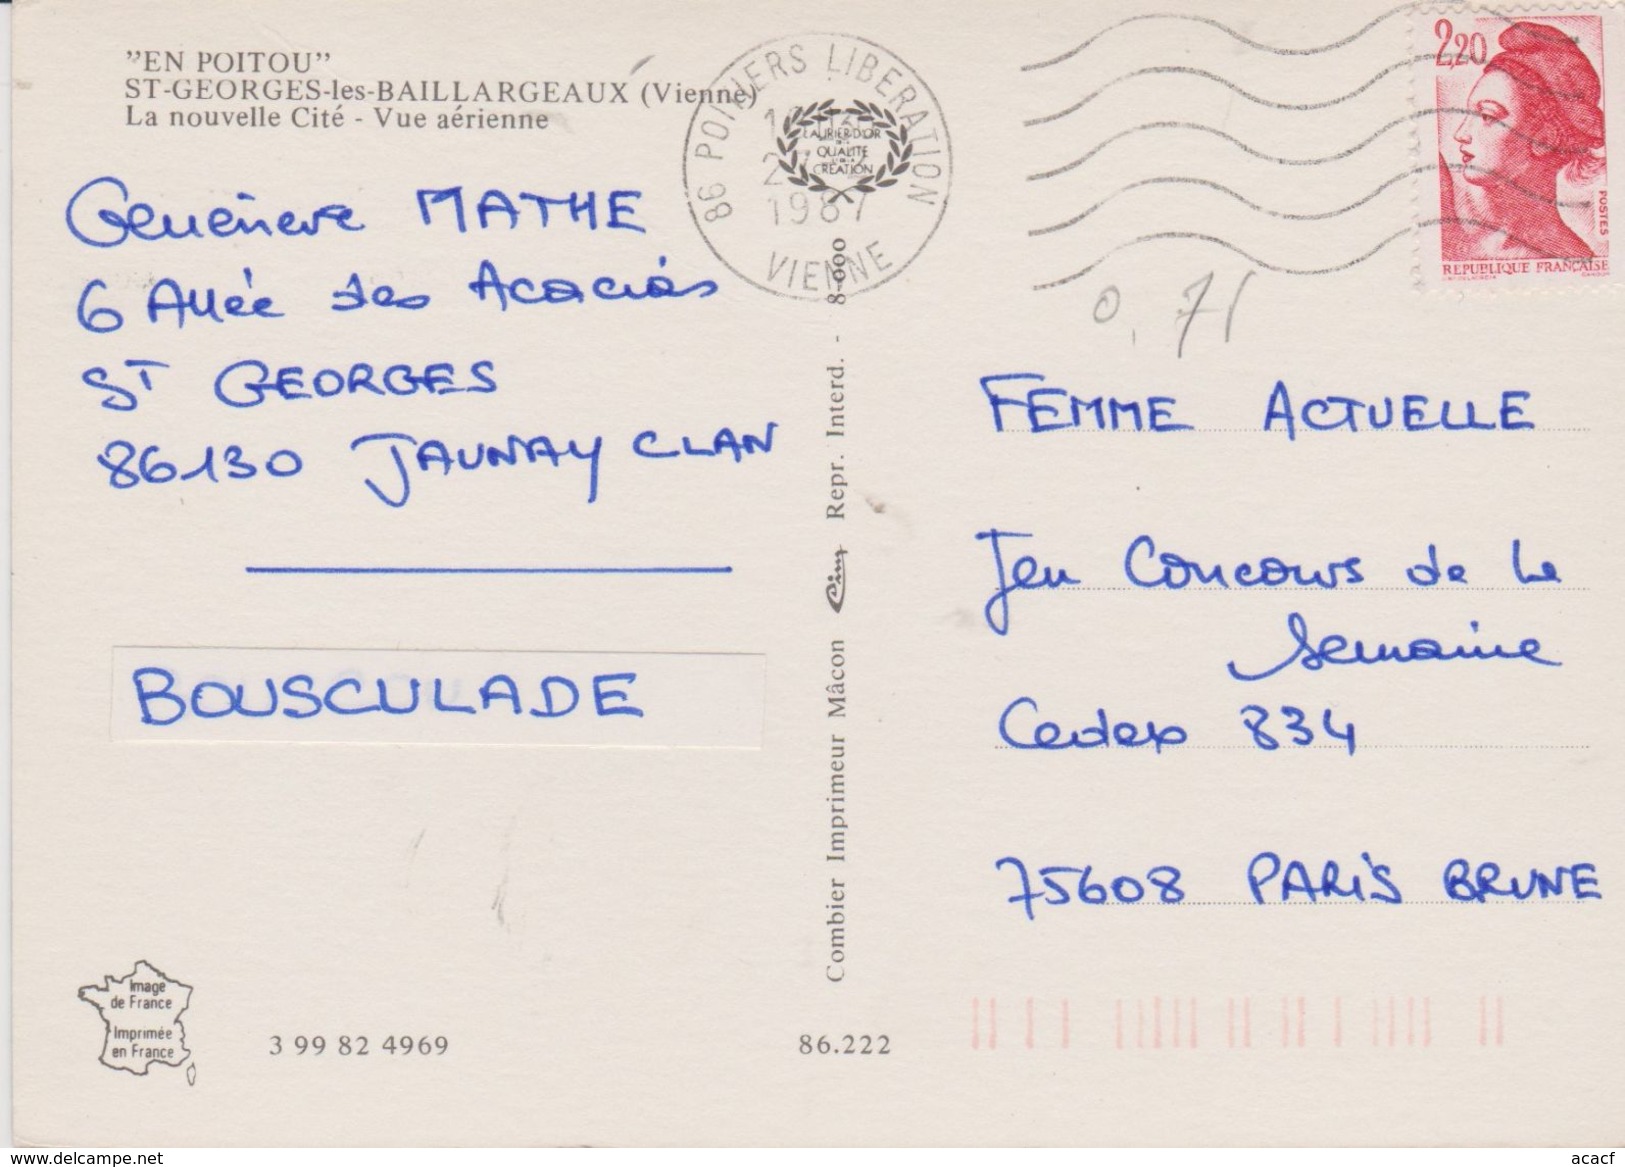 "EN POITOU"
ST-GEORGES-les-BAILLARGEAUX (Vienne)
La nouvelle Cité - Vue aérienne
86 POITIERS LIBERATION
1987
VIENNE
LAURIER D'OR
QUALITE
CREATION
2,20
POSTES
REPUBLIQUE FRANÇAISE
0,71
Geneviève MATHE
6 Allée des Acacias
ST GEORGES
86130 JAUNAY CLAN
BOUSCULADE
Combier Imprimeur Mâcon Cim Repr. Interd. - 8-000
FEMME ACTUELLE
Jeu Concours de la
semaine
Cedex 834
75608 PARIS BRUNE
Image
de France
Imprimée
en France
3 99 82 4969
86.222
www.delcampe.net
acacf